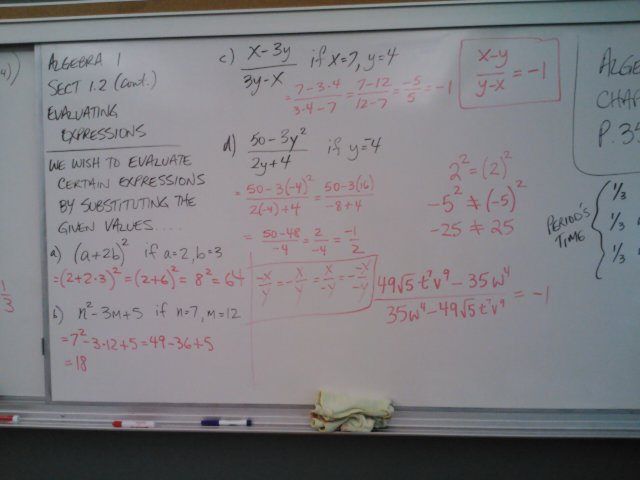 ALGEBRA 1
SECT 1.2 (cont.)
EVALUATING
EXPRESSIONS
WE WISH TO EVALUATE
CERTAIN EXPRESSIONS
BY SUBSTITUTING THE
GIVEN VALUES....
a) (a+2b)² if a=2, b=3
=(2+2·3)²=(2+6)²= 8²= 64
b) n²-3m+5 if n=7, m=12
=7²-3·12+5=49-36+5
=18
c) (x-3y)/(3y-x) if x=7, y=4
= (7-3·4)/(3·4-7) = (7-12)/(12-7) = -5/5 = -1
d) (50-3y²)/(2y+4) if y=-4
= (50-3(-4)²)/(2(-4)+4) = (50-3(16))/(-8+4)
= (50-48)/-4 = 2/-4 = -1/2
-x/y = -x/y = x/-y = - -x/-y
(x-y)/(y-x) = -1
2² = (2)²
-5² ≠ (-5)²
-25 ≠ 25
(49√5 t⁷v⁹ - 35w⁴)/(35w⁴ - 49√5 t⁷v⁹) = -1
ALGE
CHAP
P. 35
PERIOD'S
TIME
1/3
1/3
1/3
1/3